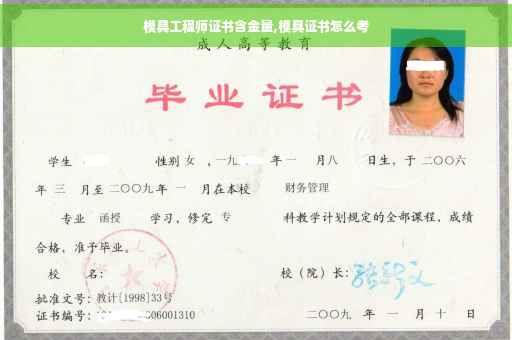 模具工程师证书含金量,模具证书怎么考
成人高等教育
毕业证书
学生 性别 女 ,一九 年 一 月八 日生，于 二〇〇六
年 三 月至 二〇〇九 年 一 月在本校 财务管理
专业 函授 学习，修完 专 科教学计划规定的全部课程，成绩
合格，准予毕业。
校 名： 校（院）长：
批准文号：教计[1998]33号
证书编号： 06001310 二〇〇九 年 一 月 十 日